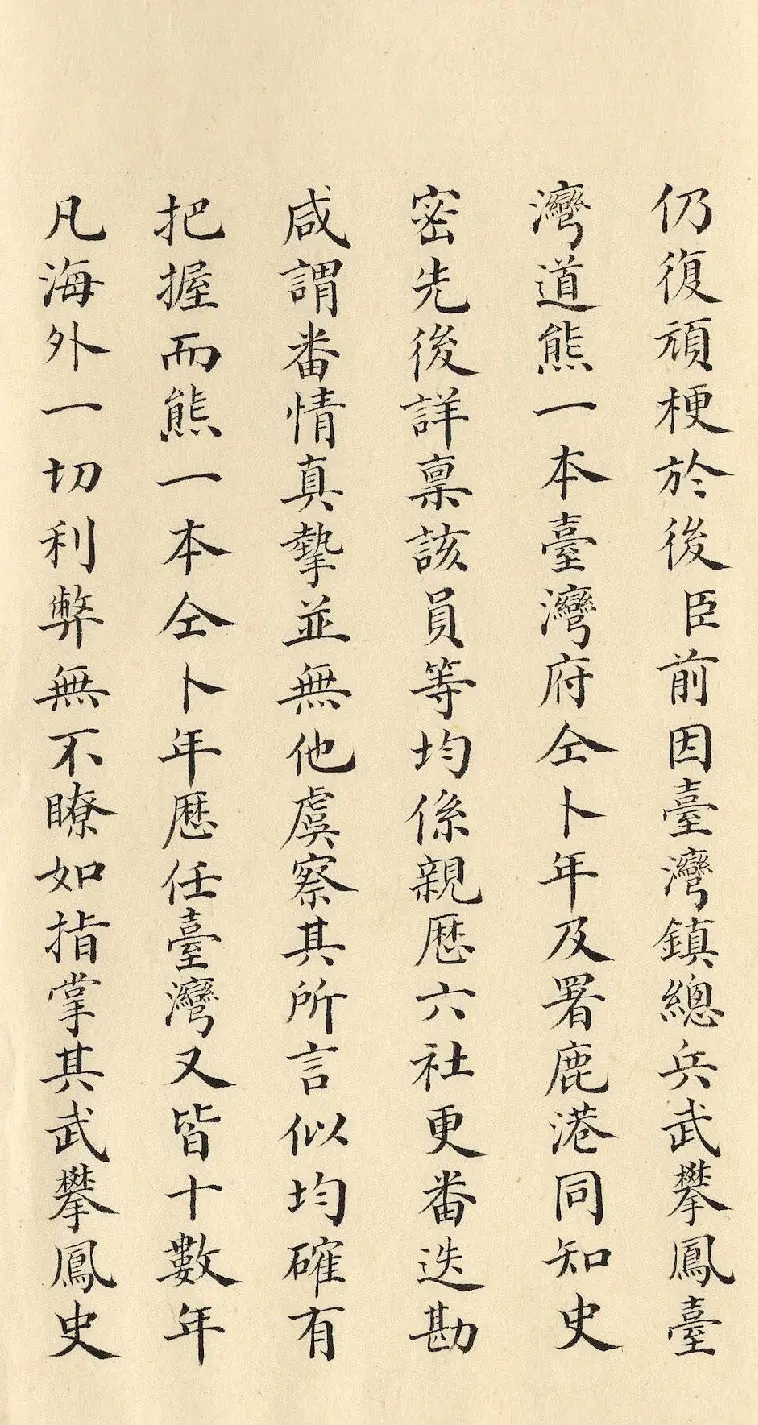 仍復頑梗於後臣前因臺灣鎮總兵武攀鳳臺
灣道熊一本臺灣府仝卜年及署鹿港同知史
密先後詳稟該員等均係親歷六社更番迭勘
咸謂番情真摯並無他虞察其所言似均確有
把握而熊一本仝卜年歷任臺灣又皆十數年
凡海外一切利弊無不瞭如指掌其武攀鳳史